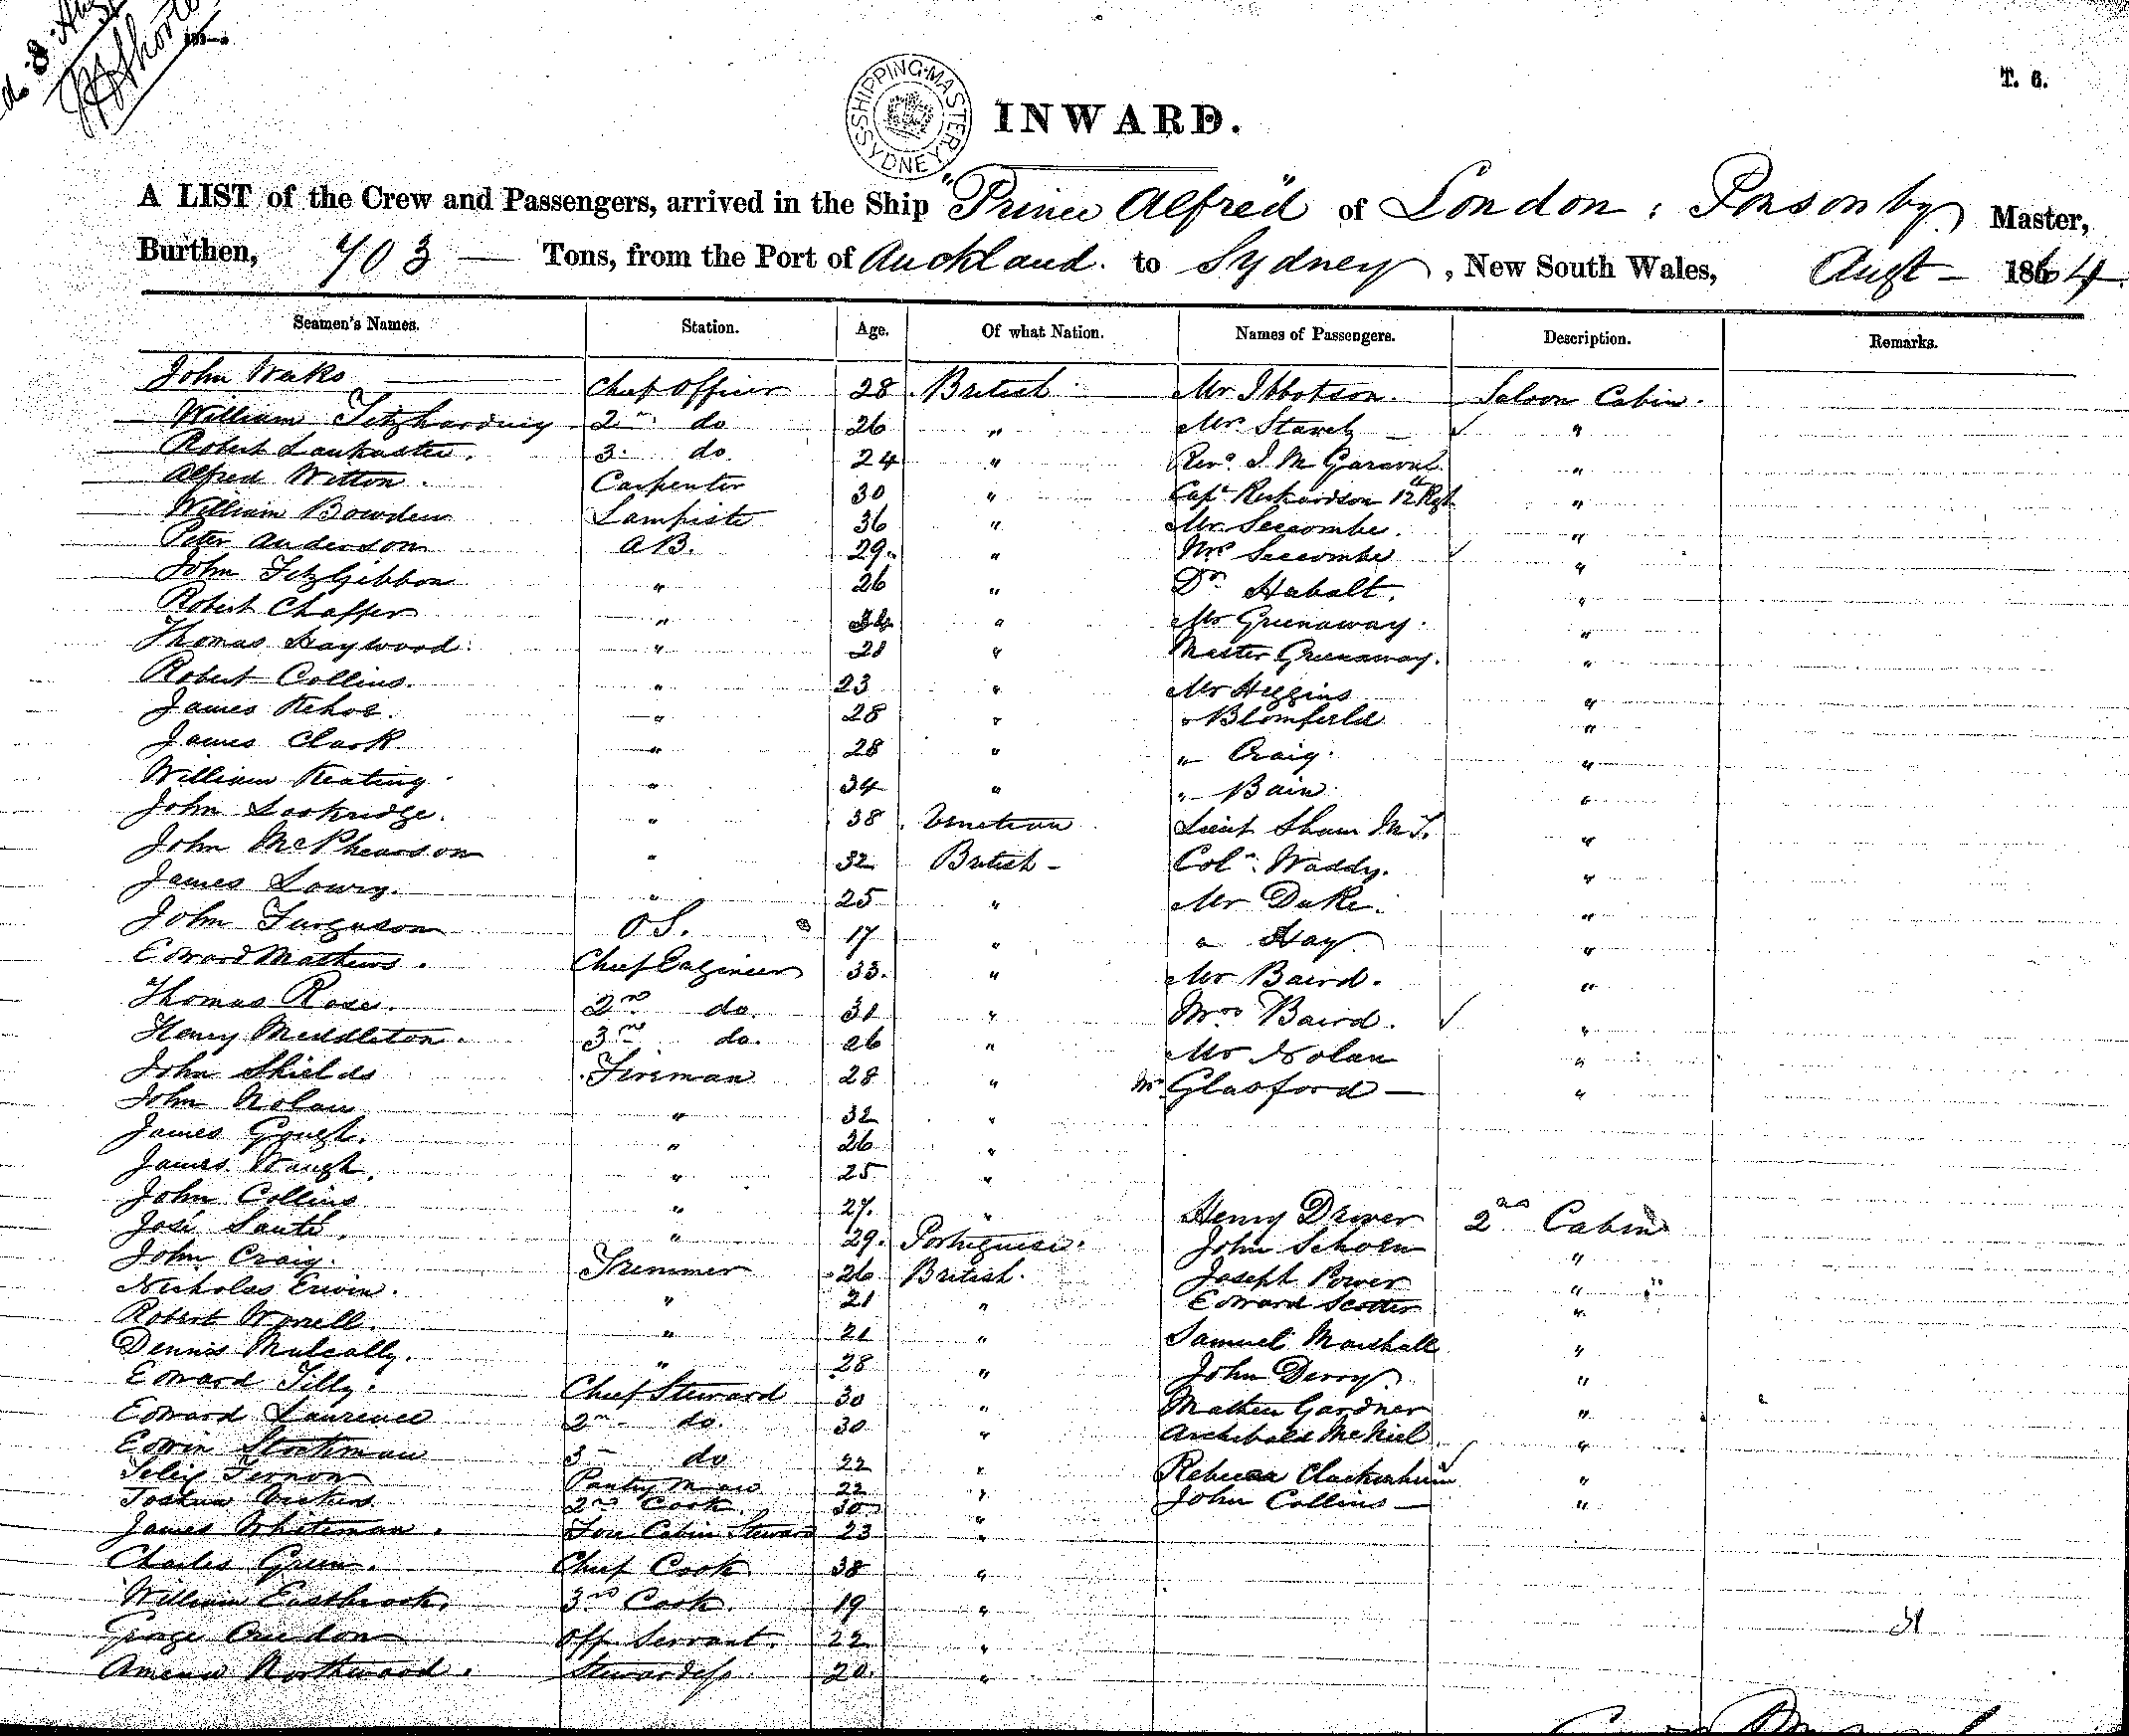 T. 6.
SHIPPING MASTER SYDNEY
INWARD.
A LIST of the Crew and Passengers, arrived in the Ship "Prince Alfred" of London, Ponsonby Master,
Burthen, 703 — Tons, from the Port of Auckland. to Sydney, New South Wales, Augt - 1864.
Seamen's Names. Station. Age. Of what Nation. Names of Passengers. Description. Remarks.
John Weeks Chief Officer 28 British Mr Ibbotson. Saloon Cabin.
William 2nd do 26 " Mrs "
Robert Lankaster. 3. do. 24 " Revd. J. M "
Alfred Witton. Carpenter 30 " Capt Richardson 12th Regt "
William Bowden Lampiste 36 " Mr. Seccombe. "
Peter Anderson AB. 29. " Mrs Seccombe "
John FitzGibbon " 26 " Dr. "
Robert Chaffer " " Mr Greenaway. "
Thomas Haywood. " 28 " Master Greenaway. "
Robert Collins. " 23 " Mr Higgins "
James Kehoe. " 28 " " Blomfield "
James Clark " 28 " " Craig. "
William Keating. " 34 " " Bain. "
John " 38 Venetian Lieut Shaw "
John McPhearson " 32 British - Coln. Waddy. "
James Lowry. " 25 " Mr Duke. "
John Furguson O.S. 17 " " Hay "
Edward Mathews. Chief Engineer 33. " Mr Baird. "
Thomas Rose. 2nd do. 31 " Mrs Baird. "
Henry Middleton. 3rd do. 26 " Mr Nolan "
John Shields Fireman 28 " Mr Glasford — "
John Nolan " 32 "
James Gough. " 26 "
James Waugh. " 25 "
John Collins " 27. " Henry Driver 2nd Cabin
José " 29. Portuguese. John Schoen "
John Craig. Trimmer 26 British. Joseph Power "
Nicholas Erwin. " 21 " Edward Scotter "
Robert " 21 " Samuel Marshall "
Dennis Mulcally. " 28 " John Derry "
Edward Tilly. Chief Steward 30 " Mathew Gardner "
Edward Laurence 2nd do. 30 " Archibald McNiel "
Edwin Stockman 3 do 22 " Rebecca "
Pantry man 22 " John Collins — "
Joshua 2nd Cook 30 "
James Whiteman. Fore Cabin Steward 23 "
Charles Green. Chief Cook 38 "
William Eastbrook. 3rd Cook. 19 "
George Off Servant. 22 "
Northwood. Stewardess 20. "